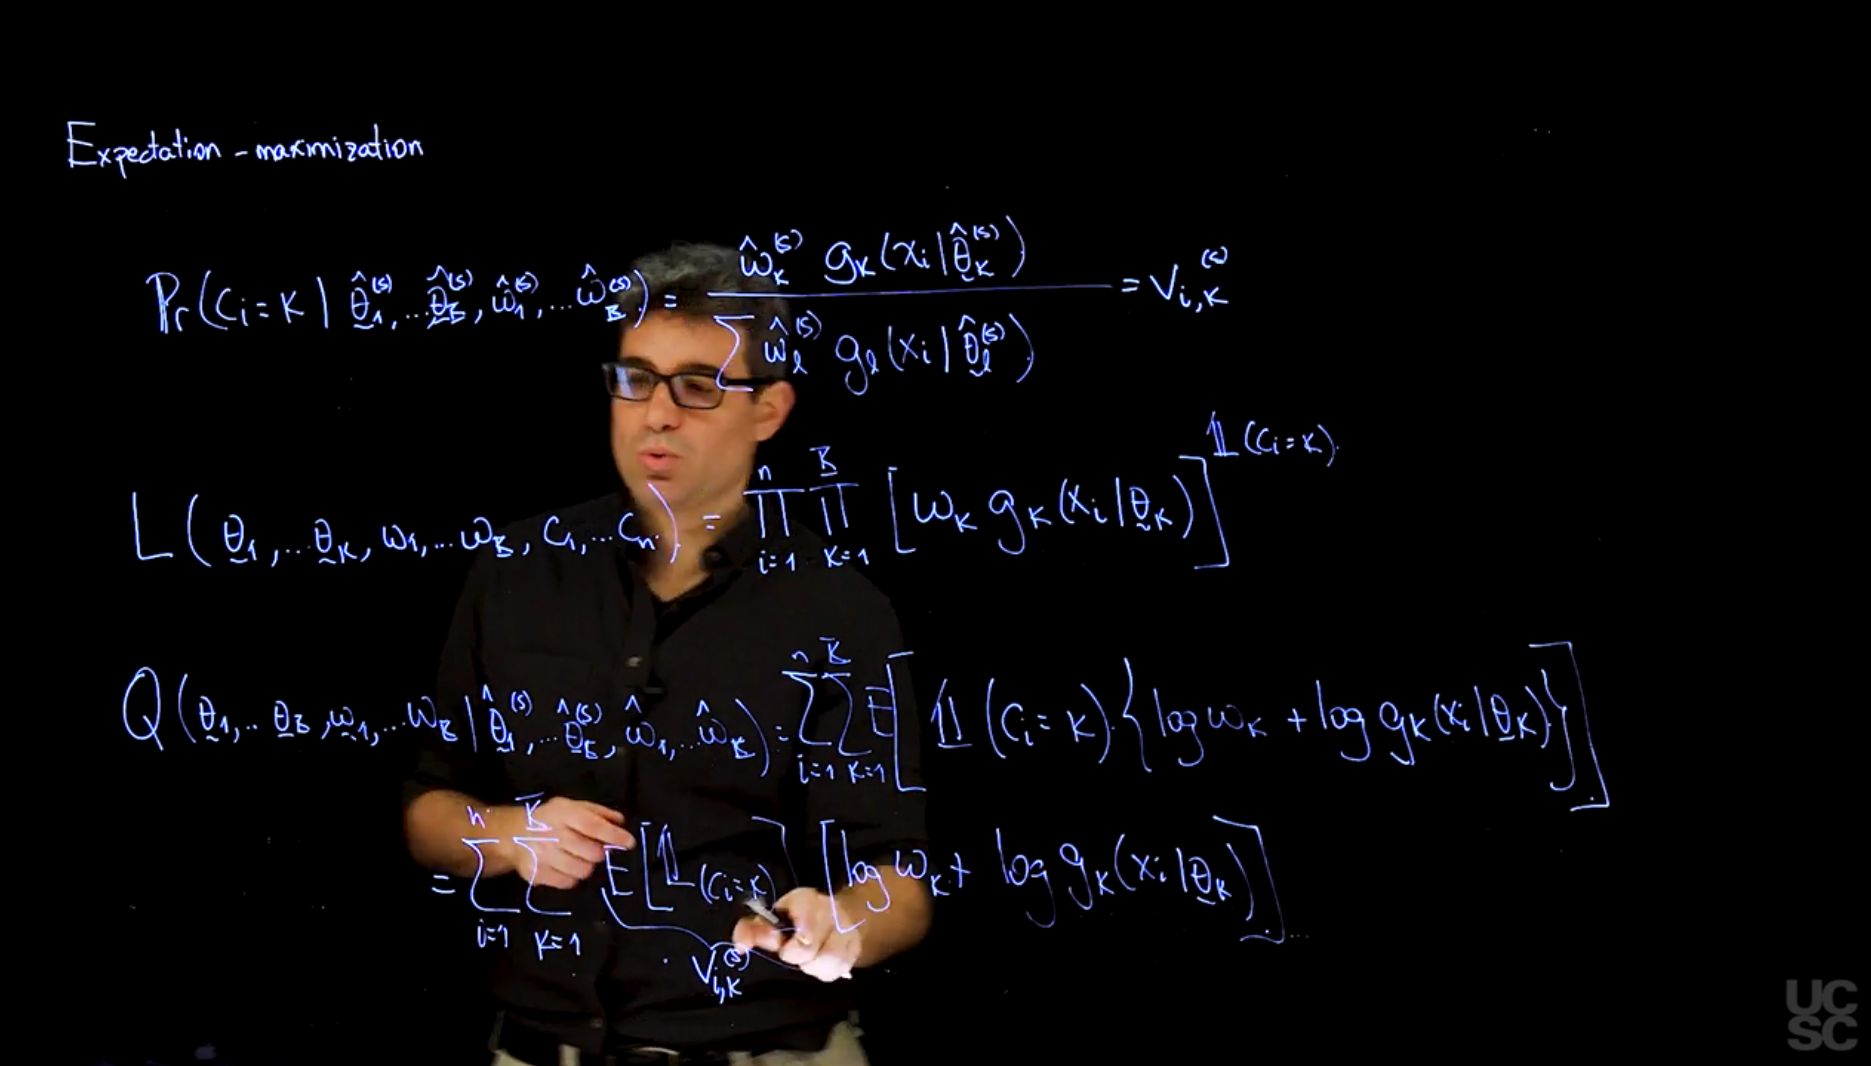 Expectation - maximization
Pr(cᵢ = K | θ̂₁⁽ˢ⁾, ... θ̂_K̄⁽ˢ⁾, ω̂₁⁽ˢ⁾, ... ω̂_K̄⁽ˢ⁾) = ω̂_K⁽ˢ⁾ g_K(xᵢ | θ̂_K⁽ˢ⁾) / Σ ω̂_ℓ⁽ˢ⁾ g_ℓ(xᵢ | θ̂_ℓ⁽ˢ⁾) = V_{i,K}⁽ˢ⁾
L(θ₁, ... θ_K, ω₁, ... ω_K̄, c₁, ... cₙ) = ∏_{i=1}^{n} ∏_{K=1}^{K̄} [ω_K g_K(xᵢ | θ_K)]^{𝟙(cᵢ = K)}
Q(θ₁, .. θ_K̄, ω₁, ... ω_K̄ | θ̂₁⁽ˢ⁾, ... θ̂_K̄⁽ˢ⁾, ω̂₁, ... ω̂_K̄) = Σ_{i=1}^{n} Σ_{K=1}^{K̄} E[𝟙(cᵢ = K) {log ω_K + log g_K(xᵢ | θ_K)}]
= Σ_{i=1}^{n} Σ_{K=1}^{K̄} E[𝟙(cᵢ = K)] [log ω_K + log g_K(xᵢ | θ_K)]
V_{i,K}⁽ˢ⁾
UC
SC